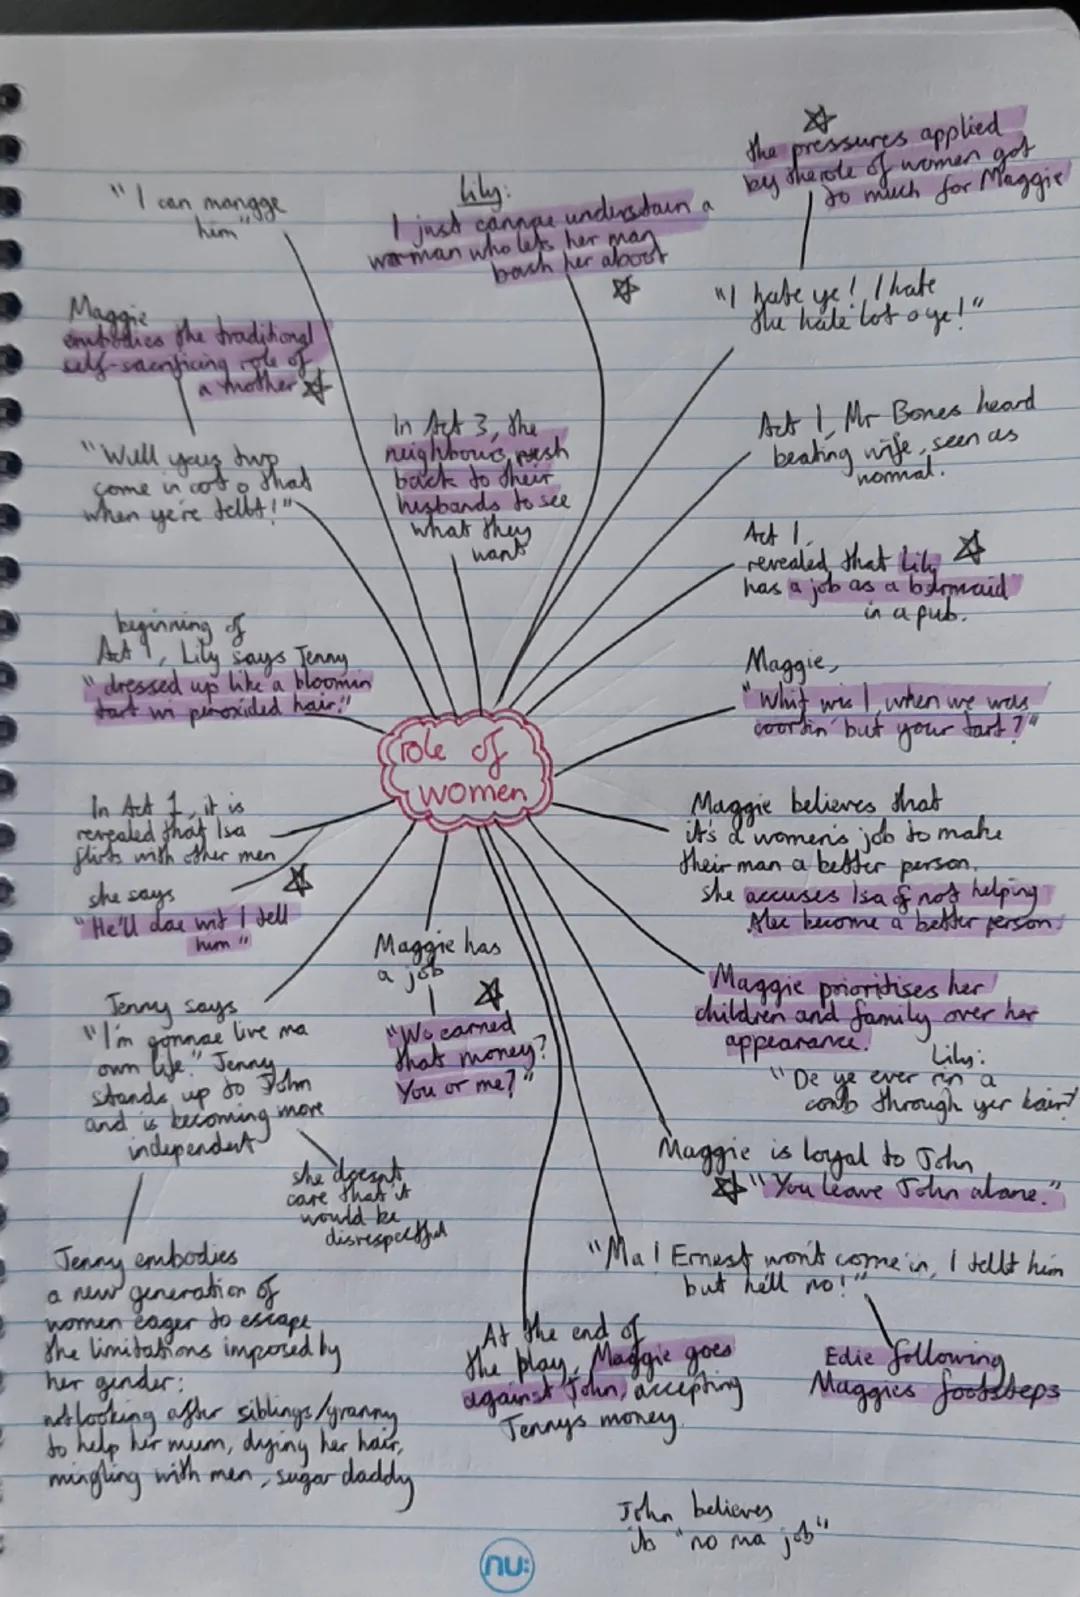 the pressures applied
by the role of women got
to much for Maggie
"I can mangge
him"
Lily:
I just cannae understaun a
woman who lets her man
bash her aboot
"I hate ye! I hate
the hale lot o ye!"
Maggie
embodies the traditional
self-sacrificing role of
a mother
"Wull youz two
come in oot o that
when ye're tellt!"
In Act 3, the
neighbours rush
back to their
husbands to see
what they
want
Act 1, Mr Bones heard
beating wife, seen as
normal.
Act 1,
revealed that Lily
has a job as a barmaid
in a pub.
beginning of
Act 1, Lily says Jenny
"dressed up like a bloomin
tart wi peroxided hair."
Maggie,
"Whit wis I, when we was
coortin' but your tart?"
role of
women
In Act 1, it is
revealed that Isa
flirts with other men
she says
"He'll dae wit I tell
him"
Maggie believes that
it's a women's job to make
their man a better person.
She accuses Isa of not helping
Alec become a better person.
Maggie has
a job
"Wo earned
that money?
You or me?"
Maggie prioritises her
children and family over her
appearance.
Lily:
"De ye ever rin a
comb through yer hair?
Jenny says
"I'm gonnae live ma
own life." Jenny
stands up to John
and is becoming more
independent
she doesnt
care that it
would be
disrespectful
Maggie is loyal to John
"You leave John alane."
"Ma! Ernest won't come in, I tellt him
but he'll no!"
Edie following
Maggies footsteps
Jenny embodies
a new generation of
women eager to escape
the limitations imposed by
her gender:
not looking after siblings/granny
to help her mum, dying her hair,
mingling with men, sugar daddy
At the end of
the play, Maggie goes
against John, accepting
Jennys money.
John believes
its "no ma job"
nu: